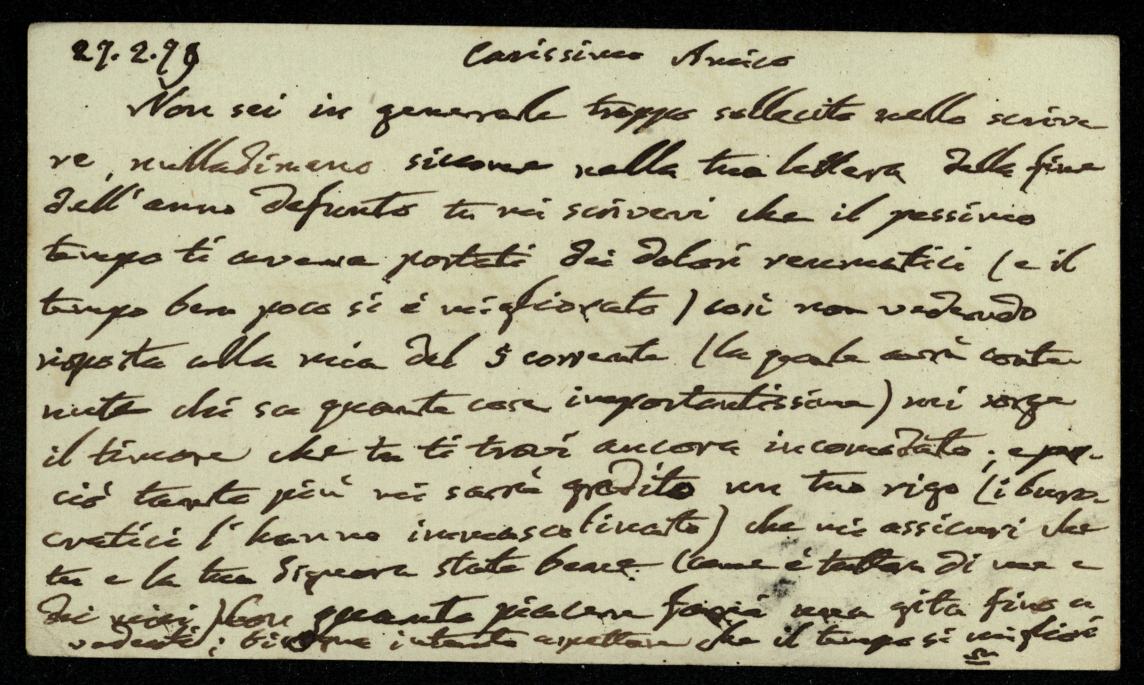 27.2.99 Carissimo Amico
Non sei in generale troppo sollecito nello scrive
re, nulladimeno siccome nella tua lettera della fine
dell'anno defunto tu mi scrivevi che il pessimo
tempo ti aveva portati dei dolori reumatici (e il
tempo ben poco si è migliorato) così non vedendo
risposta alla mia del 5 corrente (la quale avrà conte-
nute chi sa quante cose importantissime) mi sorge
il timore che tu ti trovi ancora incomodato; e per-
ciò tanto più mi sarrà gradito un tuo rigo (i buro-
cratici l'hanno immascolinato) che mi assicuri che
tu e la tua Signora state bene (come è tuttora di me e
dei miei). Con quanto piacere farei una gita fino a
vederti; bisogna intanto aspettare che il tempo si migliori